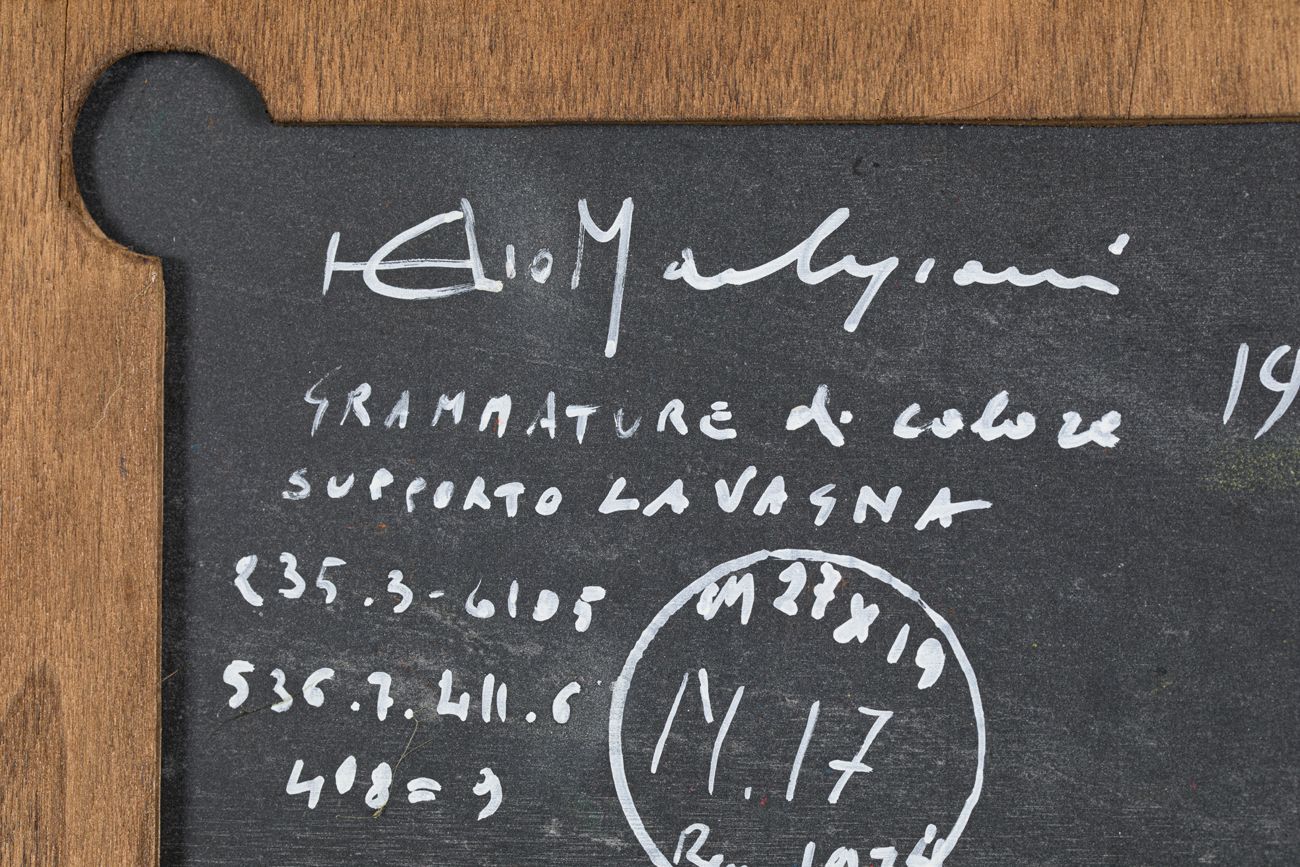 Elio Marchegiani
19
GRAMMATURE di colore
SUPPORTO LAVAGNA
235.3-6105
536.7.411.6
408=9
M 27x19
N.17
1974